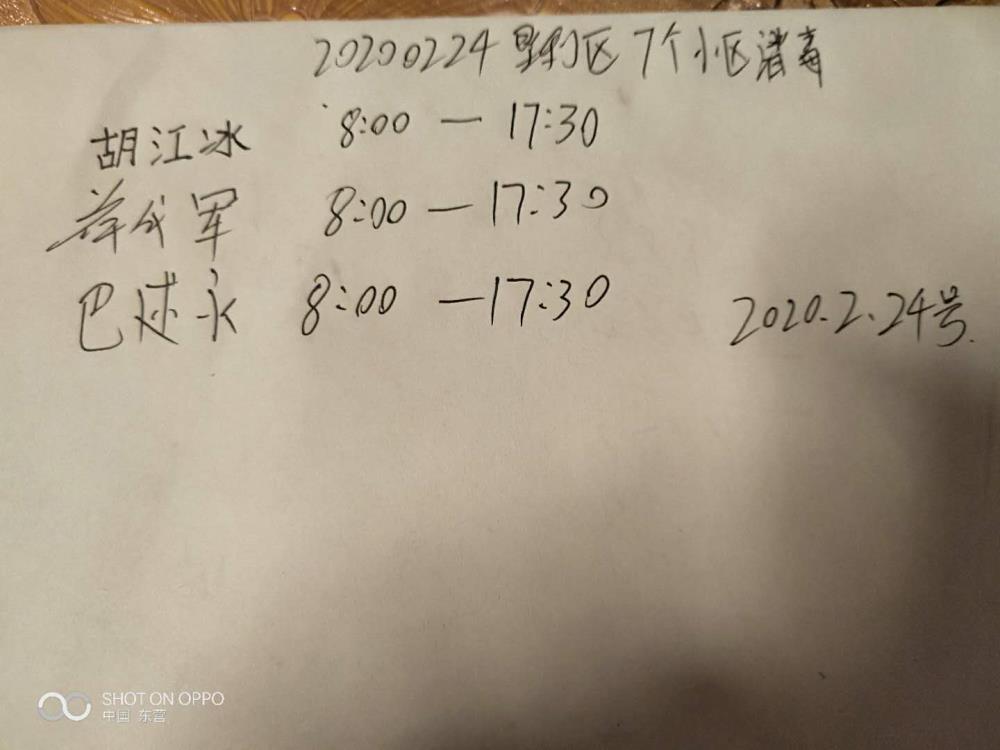 20200224垦利区7个小区消毒
胡江冰 8:00 — 17:30
薛成军 8:00 — 17:30
巴述永 8:00 — 17:30
2020.2.24号.
SHOT ON OPPO
中国 东营